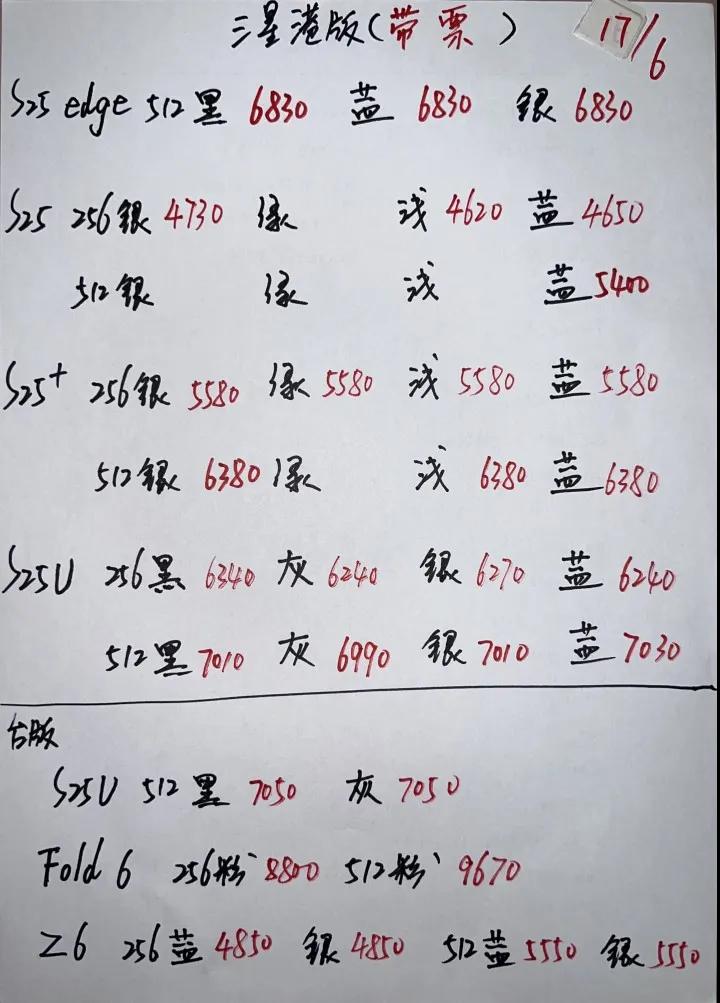 三星港版(带票) 17/6
S25 edge 512黑 6830 蓝 6830 银 6830
S25 256银 4730 绿 浅 4620 蓝 4650
512银 绿 浅 蓝 5400
S25+ 256银 5580 绿 5580 浅 5580 蓝 5580
512银 6380 绿 浅 6380 蓝 6380
S25U 256黑 6340 灰 6240 银 6270 蓝 6240
512黑 7010 灰 6990 银 7010 蓝 7030
台版
S25U 512黑 7050 灰 7050
Fold 6 256粉 8800 512粉 9670
Z6 256蓝 4850 银 4850 512蓝 5550 银 5550